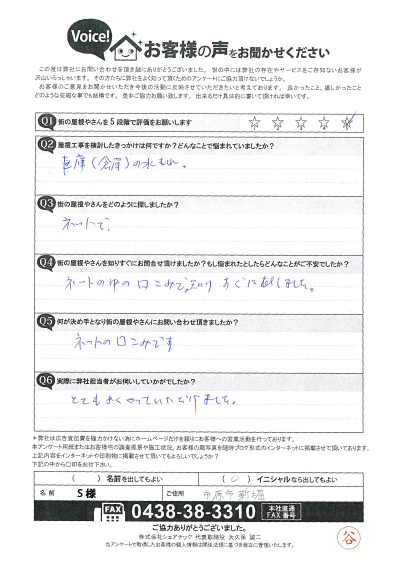 Voice!
お客様の声をお聞かせください
この度は弊社にお問い合わせを頂き誠にありがとうございました。 世の中には弊社の存在やサービスをご存知ないお客様が
沢山いらっしゃいます。 その方たちに弊社をよく知って頂くためのアンケートにご協力頂けないでしょうか。
お客様のご意見をお聞かせいただき今後の活動に反映させていただきたいと考えております。 良かったこと、嬉しかったこと
どのような些細な事でも結構です。 是非ご協力お願い致します。 出来るだけ具体的に書いて頂ければ幸いです。
Q1 街の屋根やさんを5段階で評価をお願いします
☆ ☆ ☆ ☆ ☆
Q2 屋根工事を検討したきっかけは何ですか?どんなことで悩まれていましたか?
車庫(倉庫)の水もれ。
Q3 街の屋根やさんをどのように探しましたか?
ネットで、
Q4 街の屋根やさんを知りすぐにお問合せ頂けましたか?もし悩まれたとしたらどんなことがご不安でしたか?
ネットの中の口こみで、知り すぐに しました。
Q5 何が決め手となり街の屋根やさんにお問い合わせ頂きましたか?
ネットの口こみです
Q6 実際に弊社担当者がお伺いしていかがでしたか?
とてもよくやっていただけました。
*弊社は広告宣伝費を極力かけない為にホームページだけを頼りにお客様への営業活動を行っております。
本アンケート用紙また生お客様宅の調査風景や施工状況、お客様の顔写真を随時ブログ形式のインターネットに掲載させて頂いております。
上記内容をインターネットや印刷物に掲載させて頂いてもよろしいでしょうか?
下記の中から〇印をお付下さい。
( ) 名前を出してもよい ( 〇 ) イニシャルなら出してもよい
名 前 S 様 ご住所 市原市新堀
FAX 0438-38-3310 本社直通 FAX番号
ご協力ありがとうございました。
株式会社シェアテック 代表取締役 大久保 誠二
当アンケートで取得したお客様の個人情報は関係法規に基づき厳正に管理いたします。
谷